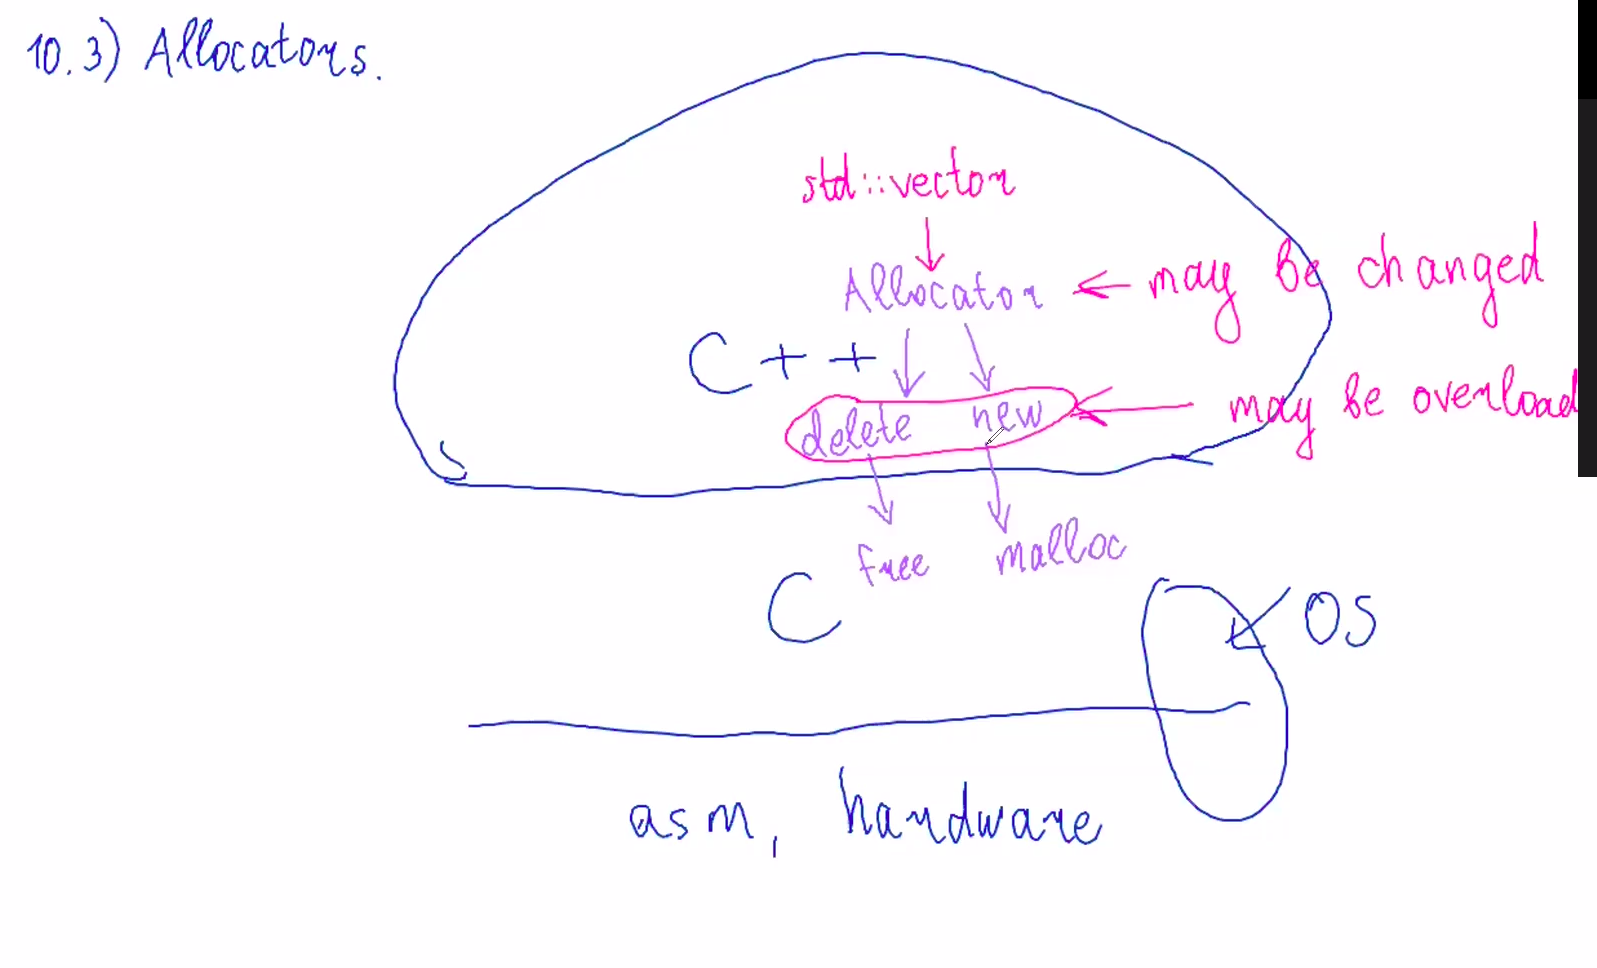 10.3) Allocators.
std::vector
Allocator ← may be changed
C++
delete new ← may be overload
free malloc
C
OS
asm, hardware